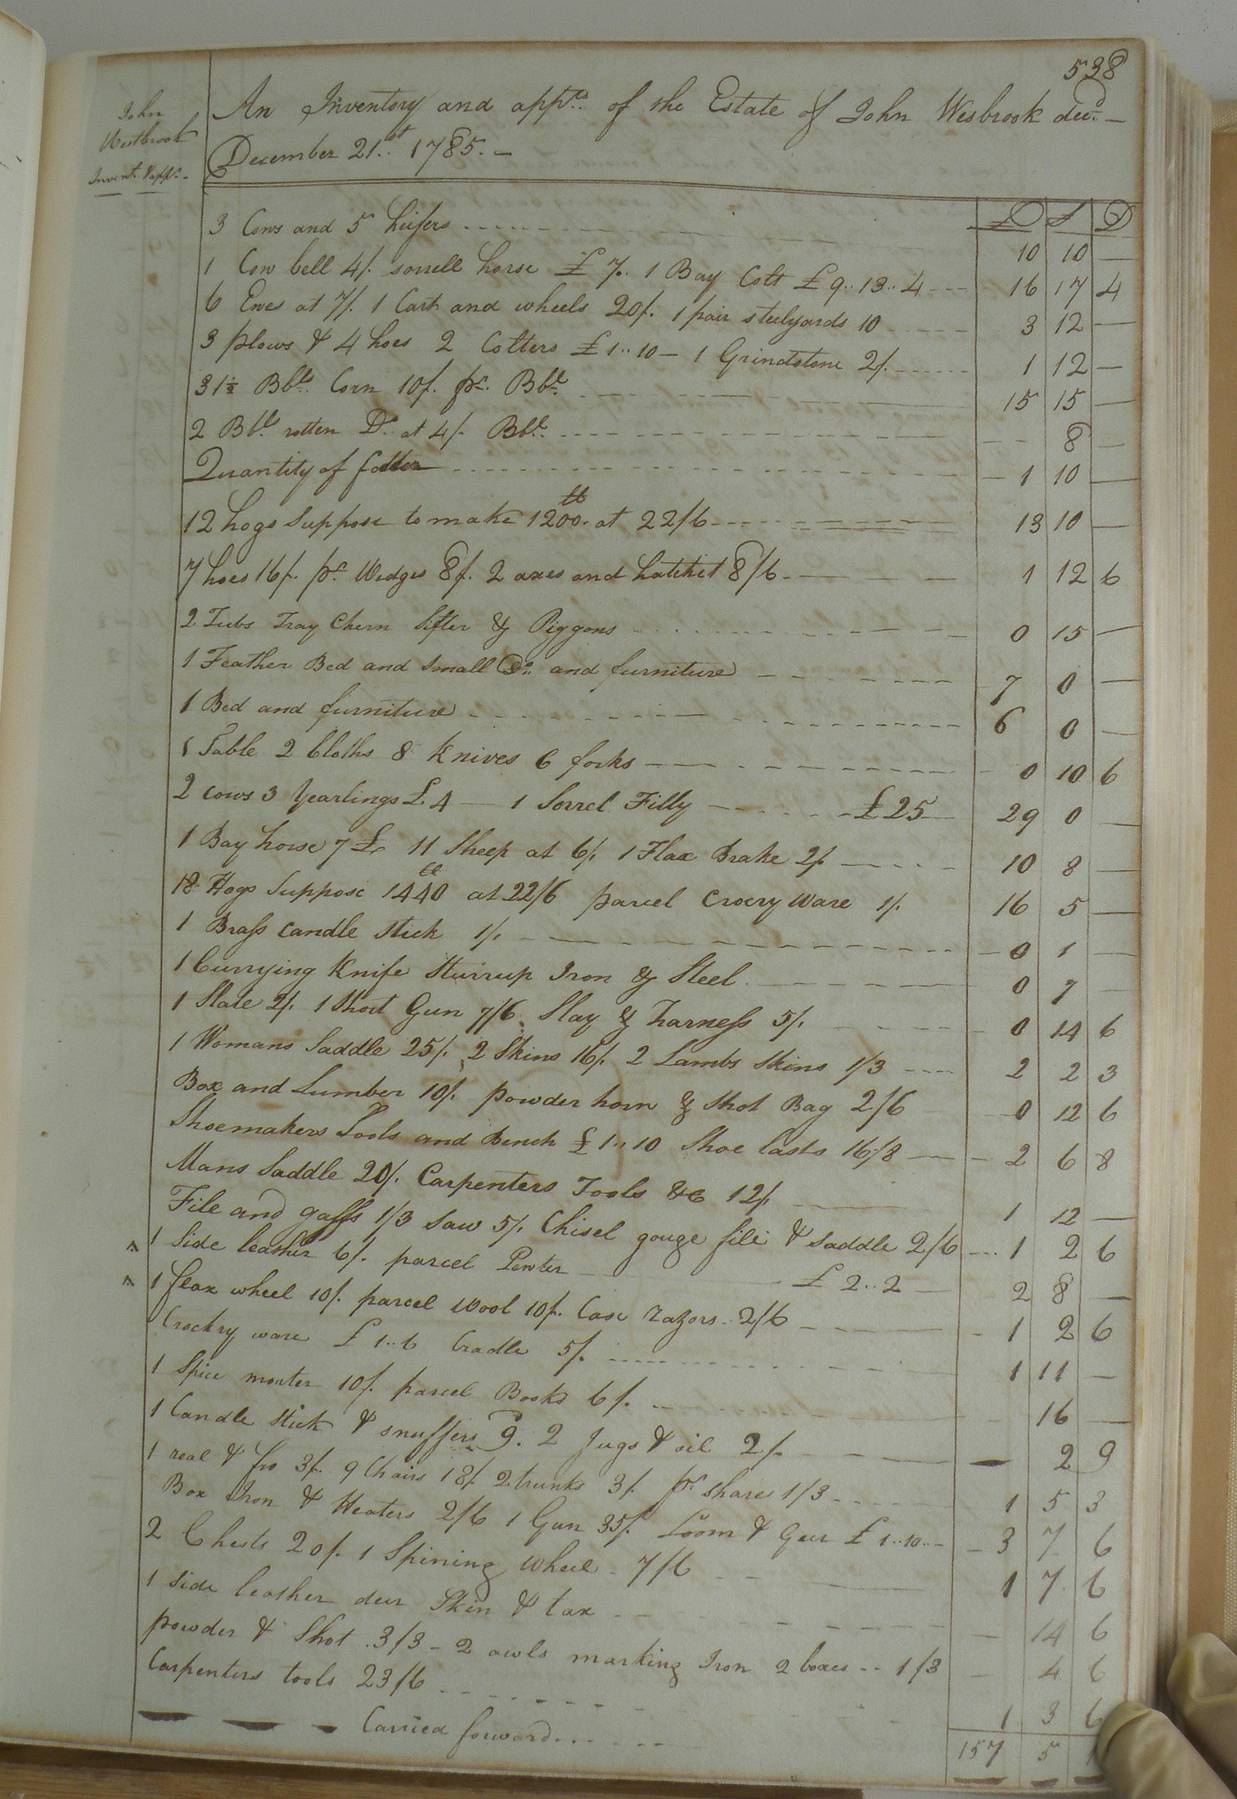 538
John
Westbrook
Invent. & app.t
An Inventory and app.t of the Estate of John Wesbrook dec.d
December 21.st 1785.
£ S D
3 Cows and 5 heifers 10 10 —
1 Cow bell 4/. sorrell horse £7.. 1 Bay Colt £9..13..4 16 17 4
6 Ewes at 7/. 1 Cart and wheels 20/. 1 pair steelyards 10 3 12 —
3 plows & 4 hoes 2 Colters £1..10 — 1 Grindstone 2/. 1 12 —
31½ Bbls Corn 10/. pr. Bbl. 15 15 —
2 Bbl. rotten Do. at 4/. Bbl. 8 —
Quantity of fodder 1 10 —
12 hogs Suppose to make 1200 lb. at 22/6 13 10 —
7 hoes 16/. pr Wedges 8/. 2 axes and hatchet 8/6 1 12 6
2 Tubs Tray Chern Sifter & Piggons 0 15 —
1 Feather Bed and Small Do. and furniture 7 0 —
1 Bed and furniture 6 0 —
1 Table 2 Cloths 8 Knives 6 forks 0 10 6
2 cows 3 Yearlings £4 — 1 Sorrel Filly £25 29 0 —
1 Bay horse 7£ 11 Sheep at 6/. 1 Flax Brake 2/. 10 8 —
18 Hogs Suppose 1440 lb at 22/6 parcel Crocry Ware 1/. 16 5 —
1 Brass candle stick 1/. 0 1 —
1 Currying Knife Stirrup Iron & Steel 0 7 —
1 Slate 2/. 1 Short Gun 7/6 Slay & harness 5/. 0 14 6
1 Womans Saddle 25/. 2 Skins 16/. 2 Lambs Skins 1/3 2 2 3
Box and Lumber 10/. powder horn & shot Bag 2/6 0 12 6
Shoemakers Tools and Bench £1..10 Shoe lasts 16/8 2 6 8
Mans Saddle 20/. Carpenters Tools &c 12/. 1 12 —
File and gaffs 1/3 Saw 5/. Chisel gouge file & saddle 2/6 1 2 6
1 Side leather 6/. parcel Pewter £2..2 2 8 —
1 flax wheel 10/. parcel wool 10/. Case razors 2/6 1 2 6
Crockry ware £1..6 Cradle 5/. 1 11 —
1 Spice morter 10/. parcel Books 6/. 16 —
1 Candle stick & snuffers 9. 2 Jugs & oil 2/. — 2 9
1 real & fro 3/. 9 Chairs 18/. 2 trunks 3/. pr shares 1/3 1 5 3
Box Iron & Heaters 2/6 1 Gun 35/. Loom & Geer £1..10.. 3 7 6
2 Chests 20/. 1 Spining wheel 7/6 1 7 6
1 side leather deer Skin & tax 14 6
powder & Shot 3/3 — 2 awls marking Iron 2 boxes 1/3 4 6
Carpenters tools 23/6 1 3 6
Carried forward 157 5